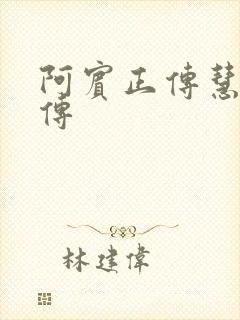 阿賓正傳慧
傳
林建偉